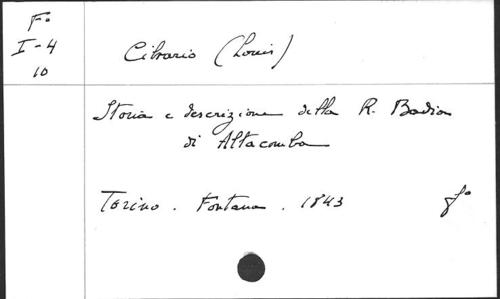 F°
I-4
10
Cibrario (Louis)
Storia e descrizione della R. Badia
di Altacomba
Torino . Fontana . 1843 f°